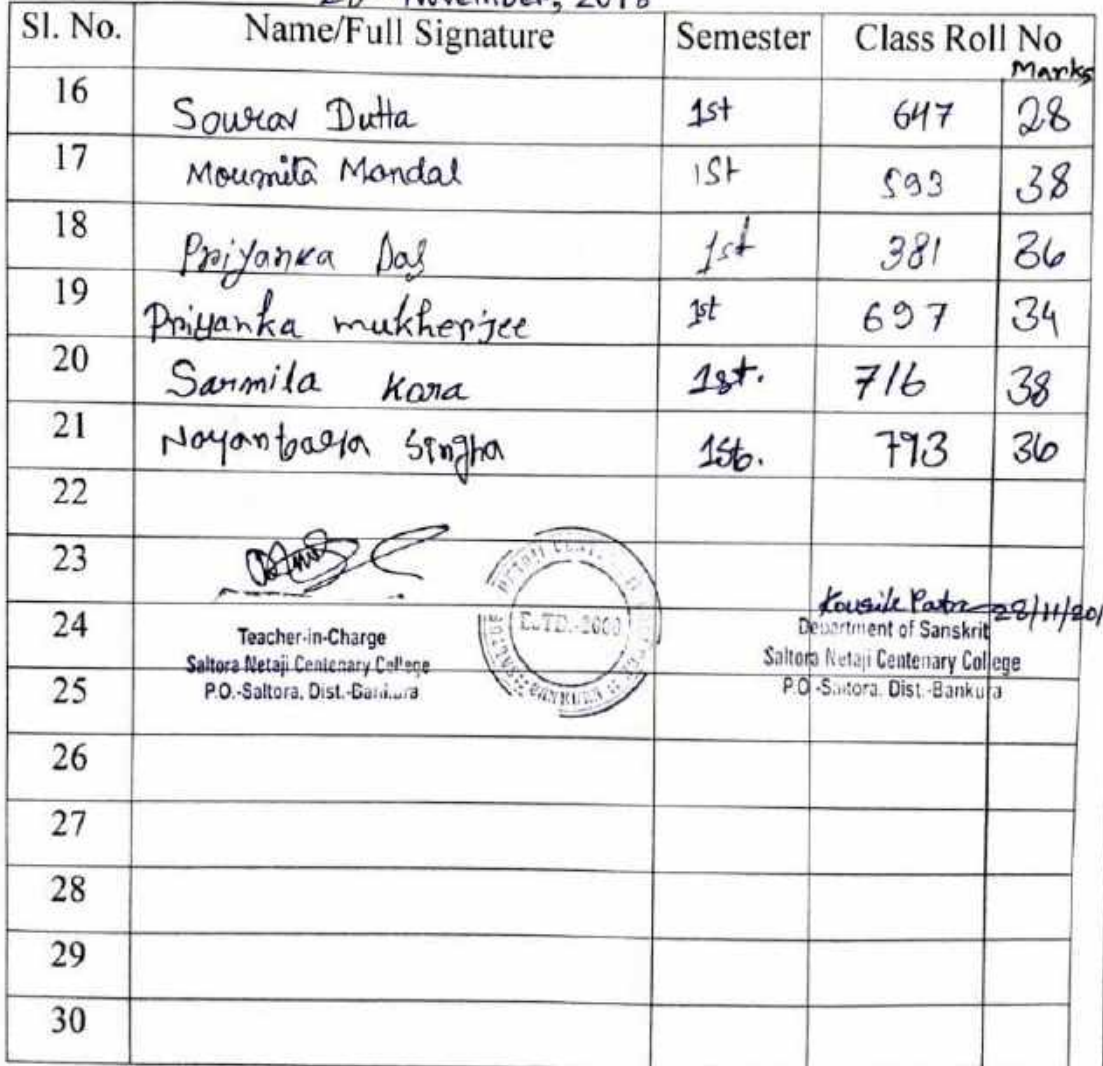 November, 2018
Sl. No. Name/Full Signature Semester Class Roll No
Marks
16 Sourav Dutta 1st 647 28
17 Moumita Mandal 1st 593 38
18 Priyanka Das 1st 381 36
19 Priyanka mukherjee 1st 697 34
20 Sarmila Kora 1st. 716 38
21 Nayantara Singha 1st. 793 36
22
23
24
25
ESTD.-2000
Teacher-in-Charge
Saltora Netaji Centenary College
P.O.-Saltora, Dist.-Bankura
Kousik Patra 28/11/201
Department of Sanskrit
Saltora Netaji Centenary College
P.O.-Saltora, Dist.-Bankura
26
27
28
29
30